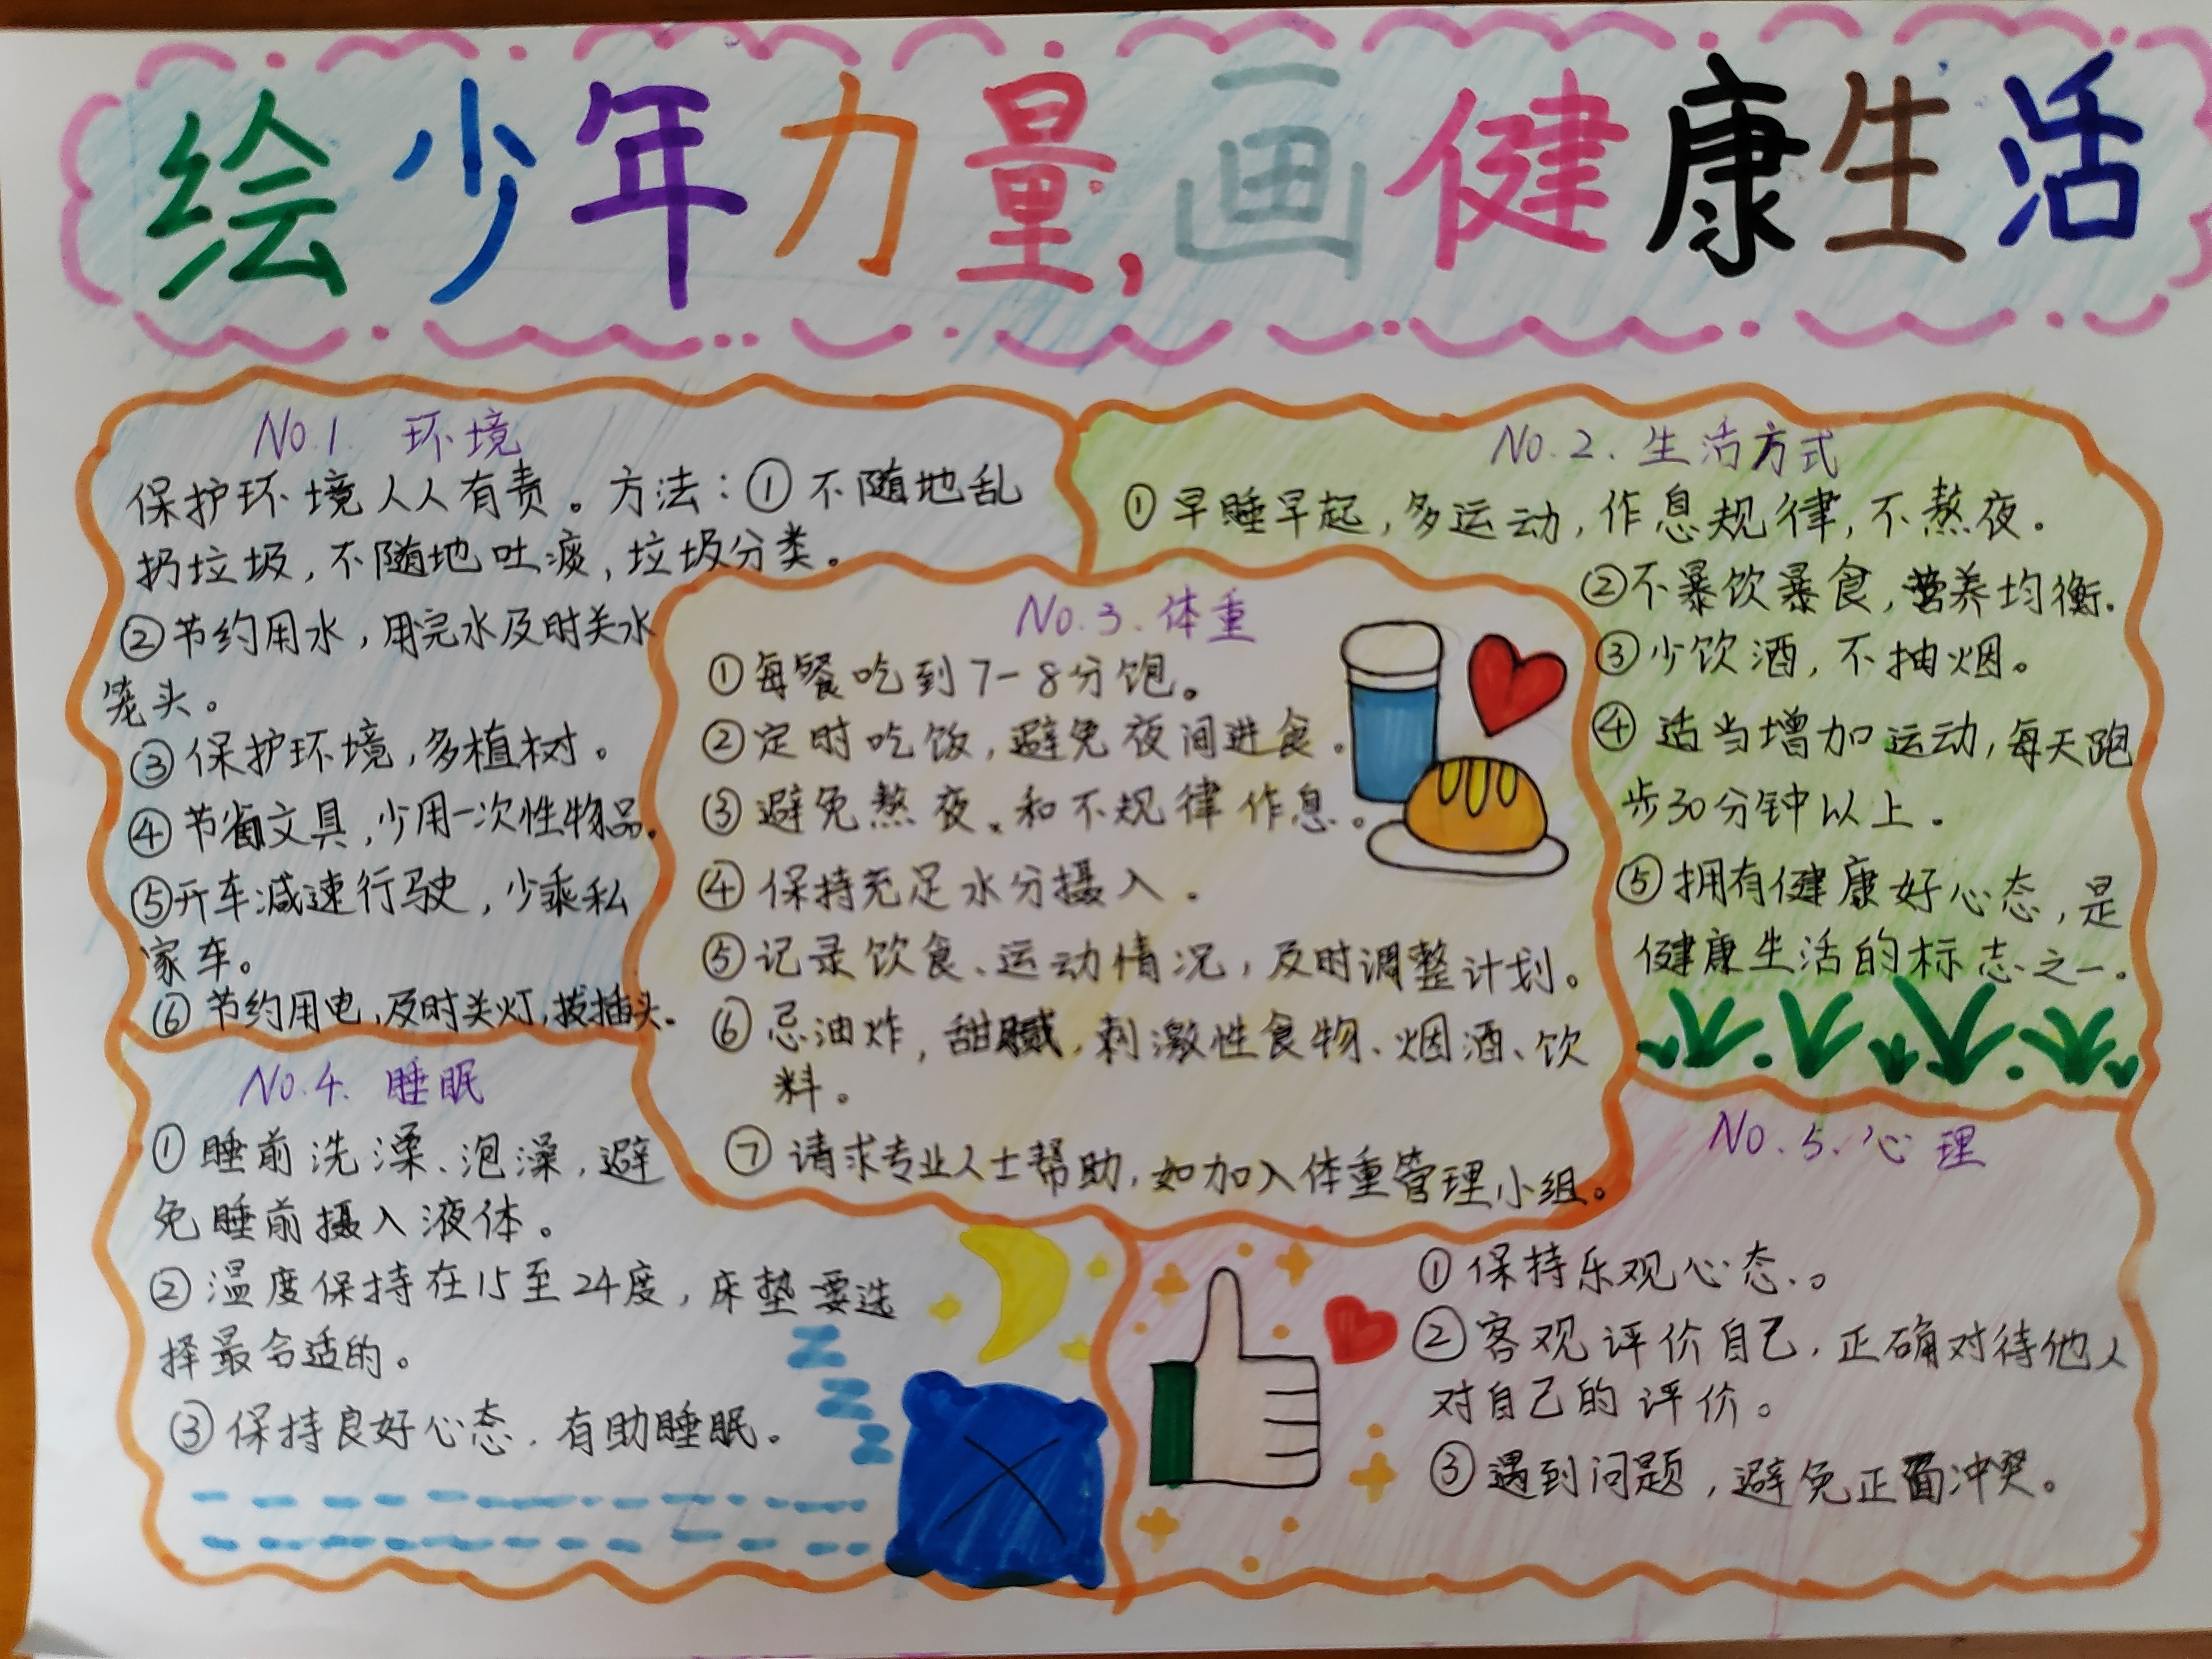 绘少年力量,画健康生活
No.1. 环境
保护环境人人有责。方法:①不随地乱
扔垃圾,不随地吐痰,垃圾分类。
②节约用水,用完水及时关水
笼头。
③保护环境,多植树。
④节省文具,少用一次性物品.
⑤开车减速行驶,少乘私
家车。
⑥节约用电,及时关灯,拔插头.
No.2.生活方式
①早睡早起,多运动,作息规律,不熬夜.
②不暴饮暴食,营养均衡.
③少饮酒,不抽烟。
④适当增加运动,每天跑
步30分钟以上.
⑤拥有健康好心态,是
健康生活的标志之一.
No.3.体重
①每餐吃到7-8分饱。
②定时吃饭,避免夜间进食.
③避免熬夜、和不规律作息。
④保持充足水分摄入.
⑤记录饮食、运动情况,及时调整计划。
⑥忌油炸,甜腻,刺激性食物、烟酒、饮
料。
⑦请求专业人士帮助,如加入体重管理小组。
No.4.睡眠
①睡前洗澡、泡澡,避
免睡前摄入液体。
②温度保持在15至24度,床垫要选
择最合适的。
③保持良好心态.有助睡眠.
Z
Z
Z
No.5.心理
①保持乐观心态.。
②客观评价自己,正确对待他人
对自己的评价。
③遇到问题,避免正面冲突。